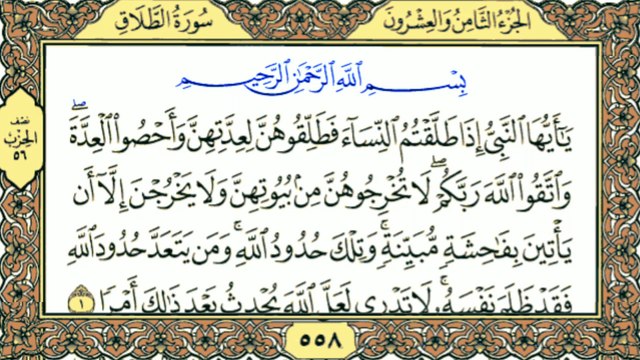 سُورَةُ الطَّلَاقِ
الجُزْءُ الثَّامِنُ وَالعِشْرُونَ
بِسْمِ ٱللَّهِ ٱلرَّحْمَٰنِ ٱلرَّحِيمِ
نصف
الحزب
٥٦
يَٰٓأَيُّهَا ٱلنَّبِىُّ إِذَا طَلَّقْتُمُ ٱلنِّسَآءَ فَطَلِّقُوهُنَّ لِعِدَّتِهِنَّ وَأَحْصُوا۟ ٱلْعِدَّةَۖ
وَٱتَّقُوا۟ ٱللَّهَ رَبَّكُمْۖ لَا تُخْرِجُوهُنَّ مِنۢ بُيُوتِهِنَّ وَلَا يَخْرُجْنَ إِلَّآ أَن
يَأْتِينَ بِفَٰحِشَةٍ مُّبَيِّنَةٍۚ وَتِلْكَ حُدُودُ ٱللَّهِۚ وَمَن يَتَعَدَّ حُدُودَ ٱللَّهِ
فَقَدْ ظَلَمَ نَفْسَهُۥۚ لَا تَدْرِى لَعَلَّ ٱللَّهَ يُحْدِثُ بَعْدَ ذَٰلِكَ أَمْرًا ١
٥٥٨